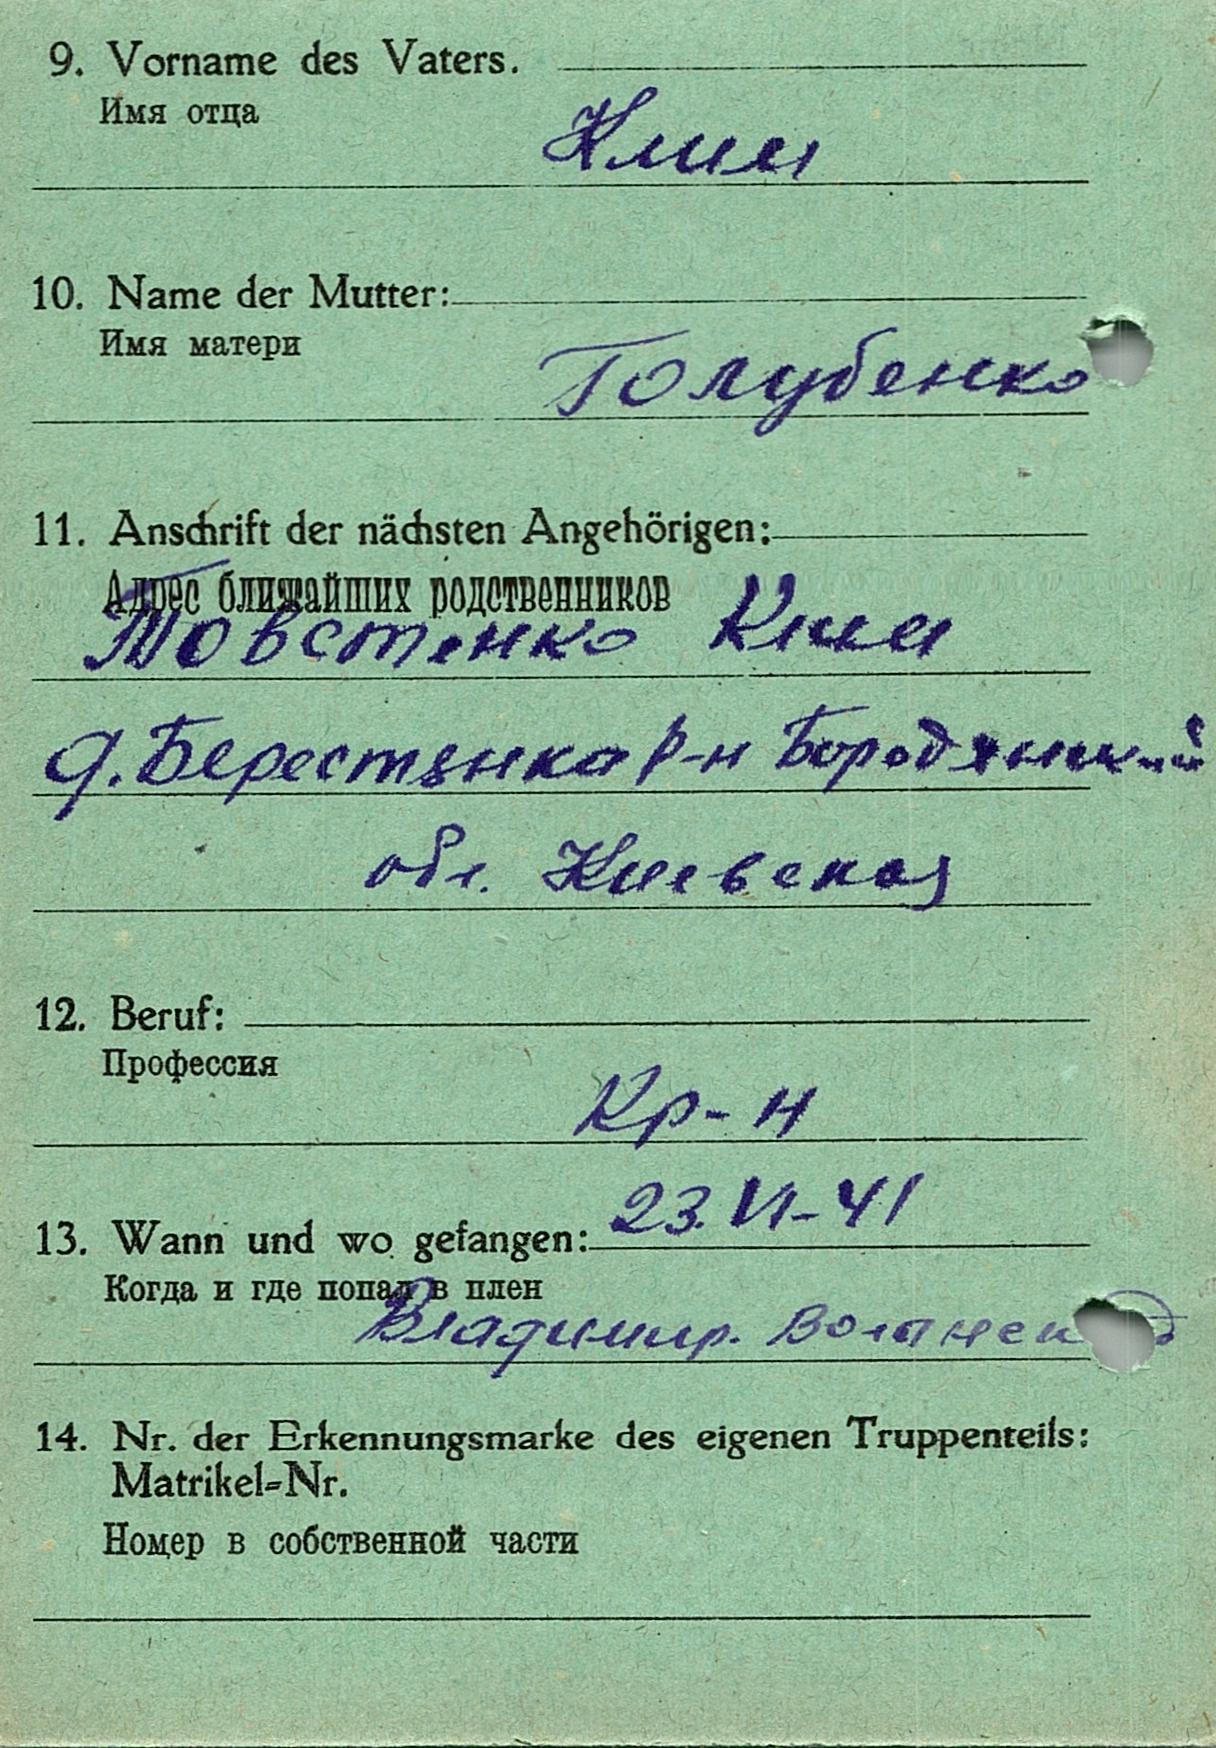 9. Vorname des Vaters.
Имя отца
Клим
10. Name der Mutter:
Имя матери
Голубенко
11. Anschrift der nächsten Angehörigen:
Адрес ближайших родственников
Товстенко Клим
д. Берестянка р-н Бородянский
обл. Киевская
12. Beruf:
Профессия
Кр-н
13. Wann und wo gefangen: 23. VI-41
Когда и где попал в плен
Владимир.
14. Nr. der Erkennungsmarke des eigenen Truppenteils:
Matrikel-Nr.
Номер в собственной части